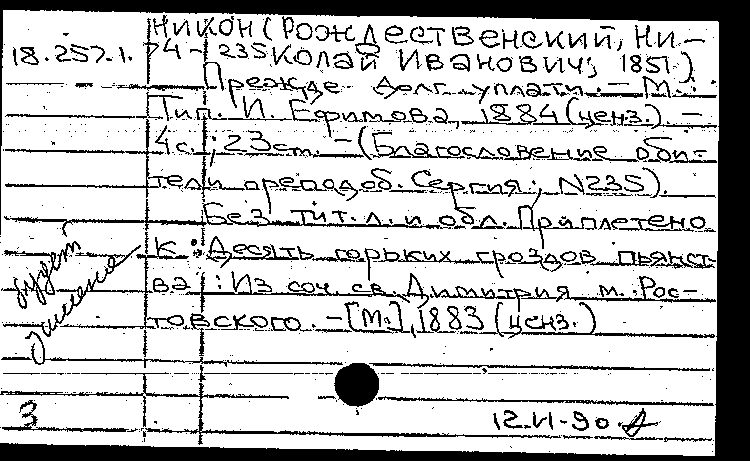 Никон (Рождественский, Ни-
18.257.1. 74-235 колай Иванович; 1851)
Прежде долг уплати. - М.:
Тип. И. Ефимова, 1884 (ценз.). -
4с.; 23см. - (Благословение оби-
тели преподоб. Сергия; N235).
Без тит.л. и обл. Приплетено
к: Десять горьких гроздов пьянст-
ва: Из соч. св. Димитрия м. Рос-
товского. - [М.], 1883 (ценз.)
будет
3 12.VI-90.